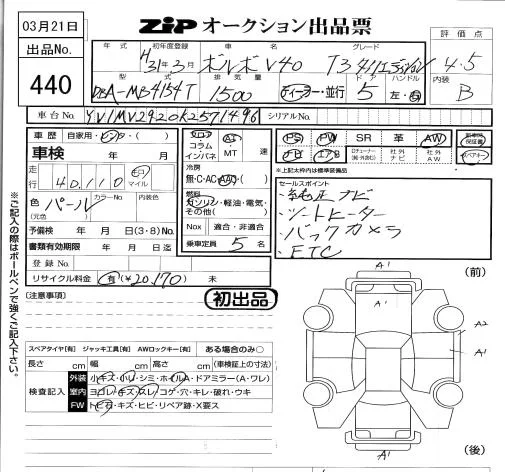 03月21日
出品No.
440
ZIP オークション出品票
評価点
4.5
内装
B
年式 初年度登録 車名 グレード
H31年3月 ボルボ V40 T3
型式 排気量 ドア ハンドル
DBA-MB4154T 1500 ディーラー・並行 5 左・右
車台No. YV1MV2920K2571496 シリアルNo.
車歴 自家用・レンタ・( )
車検 年 月
走行 40,110 キロ マイル
色 パール (元色) カラーNo. 内装色
予備検 年 月 日(3・8)No.
書類有効期限 年 月 日迄
登録No.
リサイクル料金 有(¥20,170) 未
フロア コラム インパネ
AT・MT 速
冷房
無・C・AC・AAC・( )
燃料
ガソリン・軽油・電気・その他( )
Nox 適合・非適合
乗車定員 5 名
PS PW SR 革 AW
ナビ エアB 社外ナビ 社外AW
新車時保証書
スペアキー
※上記太枠内は標準装備品
セールスポイント
・純正ナビ
・シートヒーター
・バックカメラ
・ETC
(注意事項)
初出品
スペアタイヤ[有] ジャッキ工具[有] AWロックキー[有] ある場合のみ○
長さ cm 幅 cm 高さ cm (車検証上の寸法)
検査記入
外装 小キズ・小凹・シミ・ホイルA・ドアミラー(A・ワレ)
室内 ヨゴレ・キズ・スレ・コゲ・穴・キレ・破れ・ウキ
FW トビ石・キズ・ヒビ・リペア跡・X要ス
※ご記入の際はボールペンで強くご記入下さい。
(前)
A1
A1
A2
A1
A1
(後)